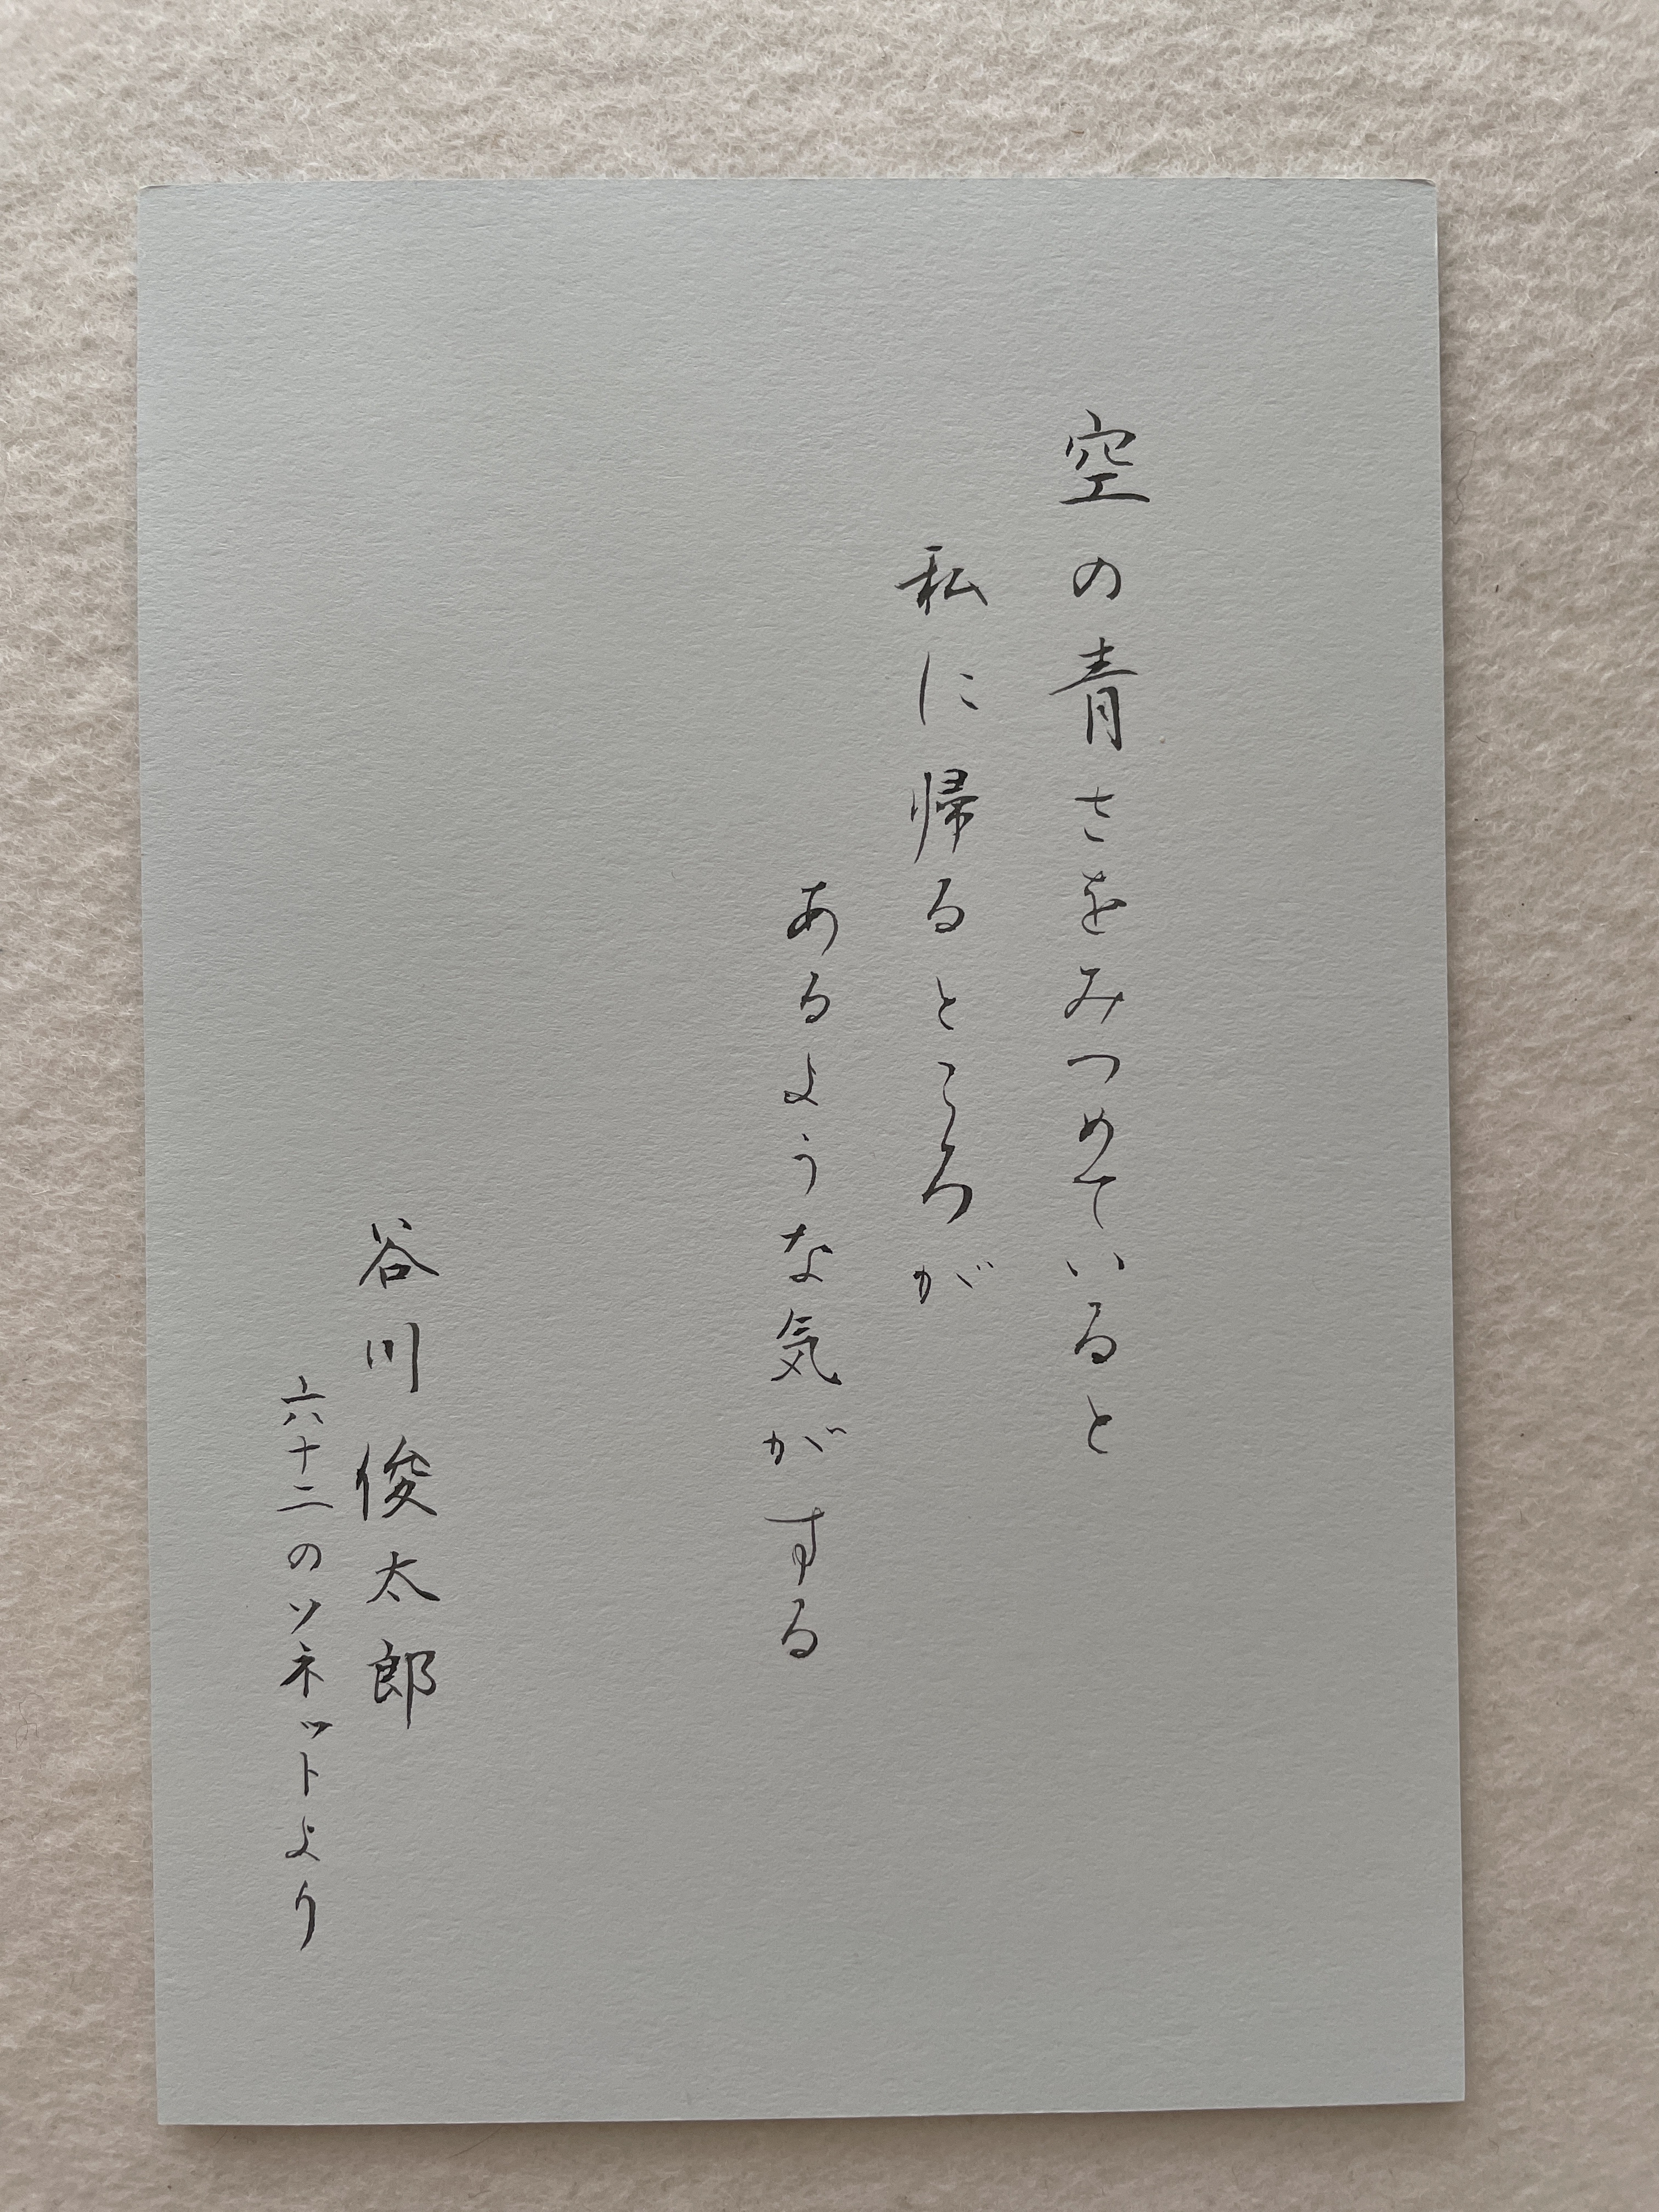 空の青さをみつめていると
私に帰るところが
あるような気がする
谷川俊太郎
六十二のソネットより